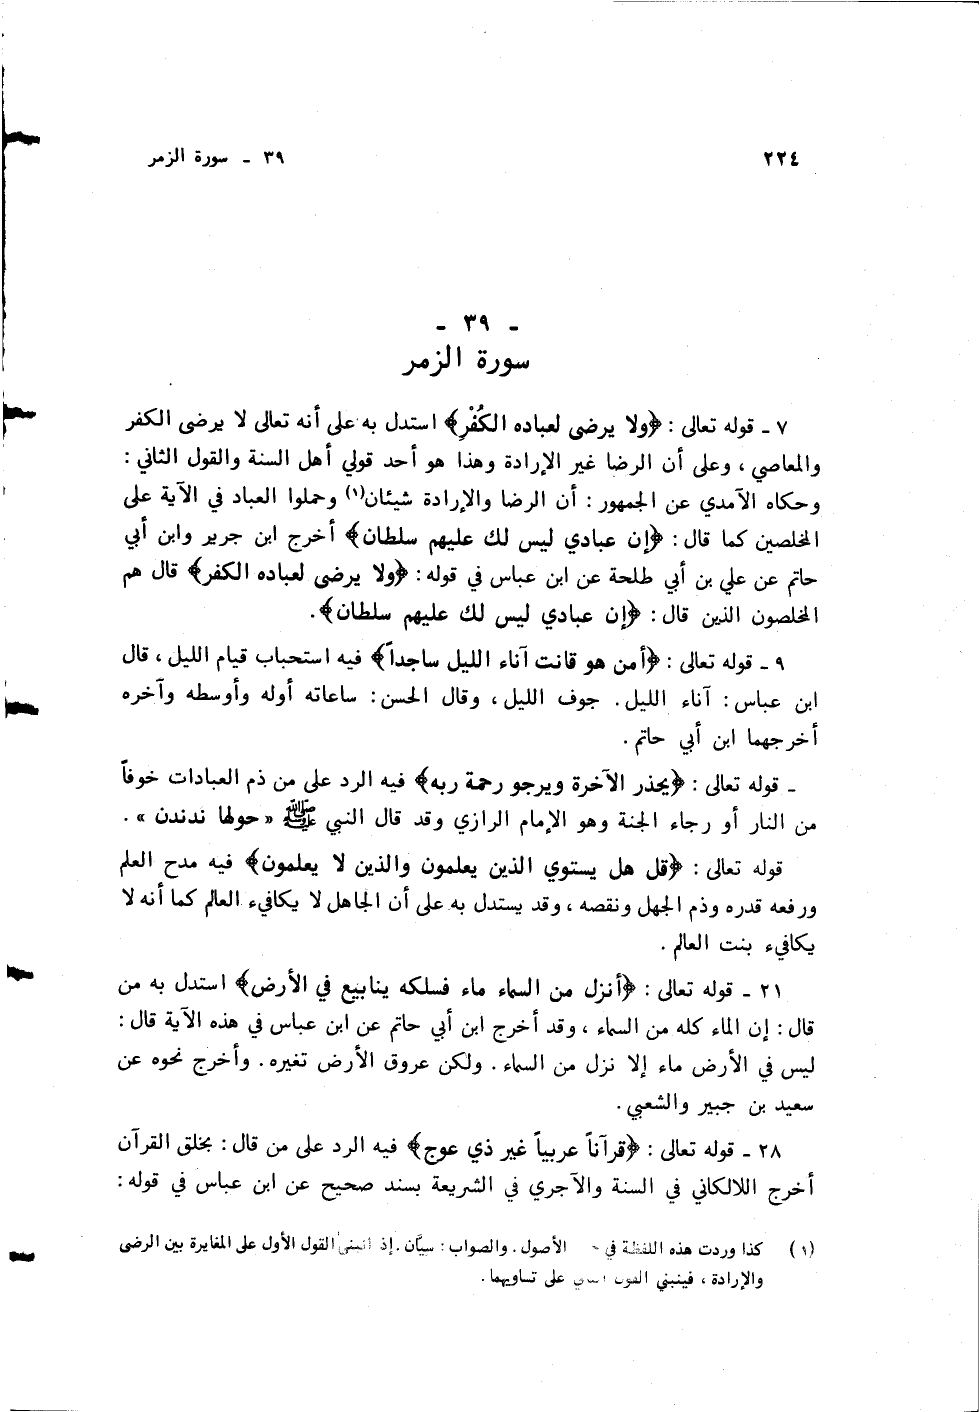 ٢٢٤
٣٩ - سورة الزمر
- ٣٩ -
سورة الزمر
٧ - قوله تعالى : ﴿ولا يرضى لعباده الكُفْرِ﴾ استدل به على أنه تعالى لا يرضى الكفر
والمعاصي ، وعلى أن الرضا غير الإرادة وهذا هو أحد قولي أهل السنة والقول الثاني :
وحكاه الآمدي عن الجمهور : أن الرضا والإرادة شيئان(١) وحملوا العباد في الآية على
المخلصين كما قال : ﴿إن عبادي ليس لك عليهم سلطان﴾ أخرج ابن جرير وابن أبي
حاتم عن علي بن أبي طلحة عن ابن عباس في قوله : ﴿ولا يرضى لعباده الكفر﴾ قال هم
المخلصون الذين قال : ﴿إن عبادي ليس لك عليهم سلطان﴾.
٩ - قوله تعالى : ﴿أمن هو قانت آناء الليل ساجداً﴾ فيه استحباب قيام الليل ، قال
ابن عباس : آناء الليل . جوف الليل ، وقال الحسن : ساعاته أوله وأوسطه وآخره
أخرجهما ابن أبي حاتم .
- قوله تعالى : ﴿يحذر الآخرة ويرجو رحمة ربه﴾ فيه الرد على من ذم العبادات خوفاً
من النار أو رجاء الجنة وهو الإمام الرازي وقد قال النبي ﷺ « حولها ندندن » .
قوله تعالى : ﴿قل هل يستوي الذين يعلمون والذين لا يعلمون﴾ فيه مدح العلم
ورفعه قدره وذم الجهل ونقصه ، وقد يستدل به على أن الجاهل لا يكافيء العالم كما أنه لا
يكافيء بنت العالم .
٢١ - قوله تعالى : ﴿أنزل من السماء ماء فسلكه ينابيع في الأرض﴾ استدل به من
قال : إن الماء كله من السماء ، وقد أخرج ابن أبي حاتم عن ابن عباس في هذه الآية قال :
ليس في الأرض ماء إلا نزل من السماء . ولكن عروق الأرض تغيره . وأخرج نحوه عن
سعيد بن جبير والشعبي .
٢٨ - قوله تعالى : ﴿قرآناً عربياً غير ذي عوج﴾ فيه الرد على من قال : بخلق القرآن
أخرج اللالكاني في السنة والآجري في الشريعة بسند صحيح عن ابن عباس في قوله :
(١) كذا وردت هذه اللفظة في الأصول . والصواب : سيَّان . إذ انبنى القول الأول على المغايرة بين الرضى
والإرادة ، فينبني القول الثاني على تساويهما .